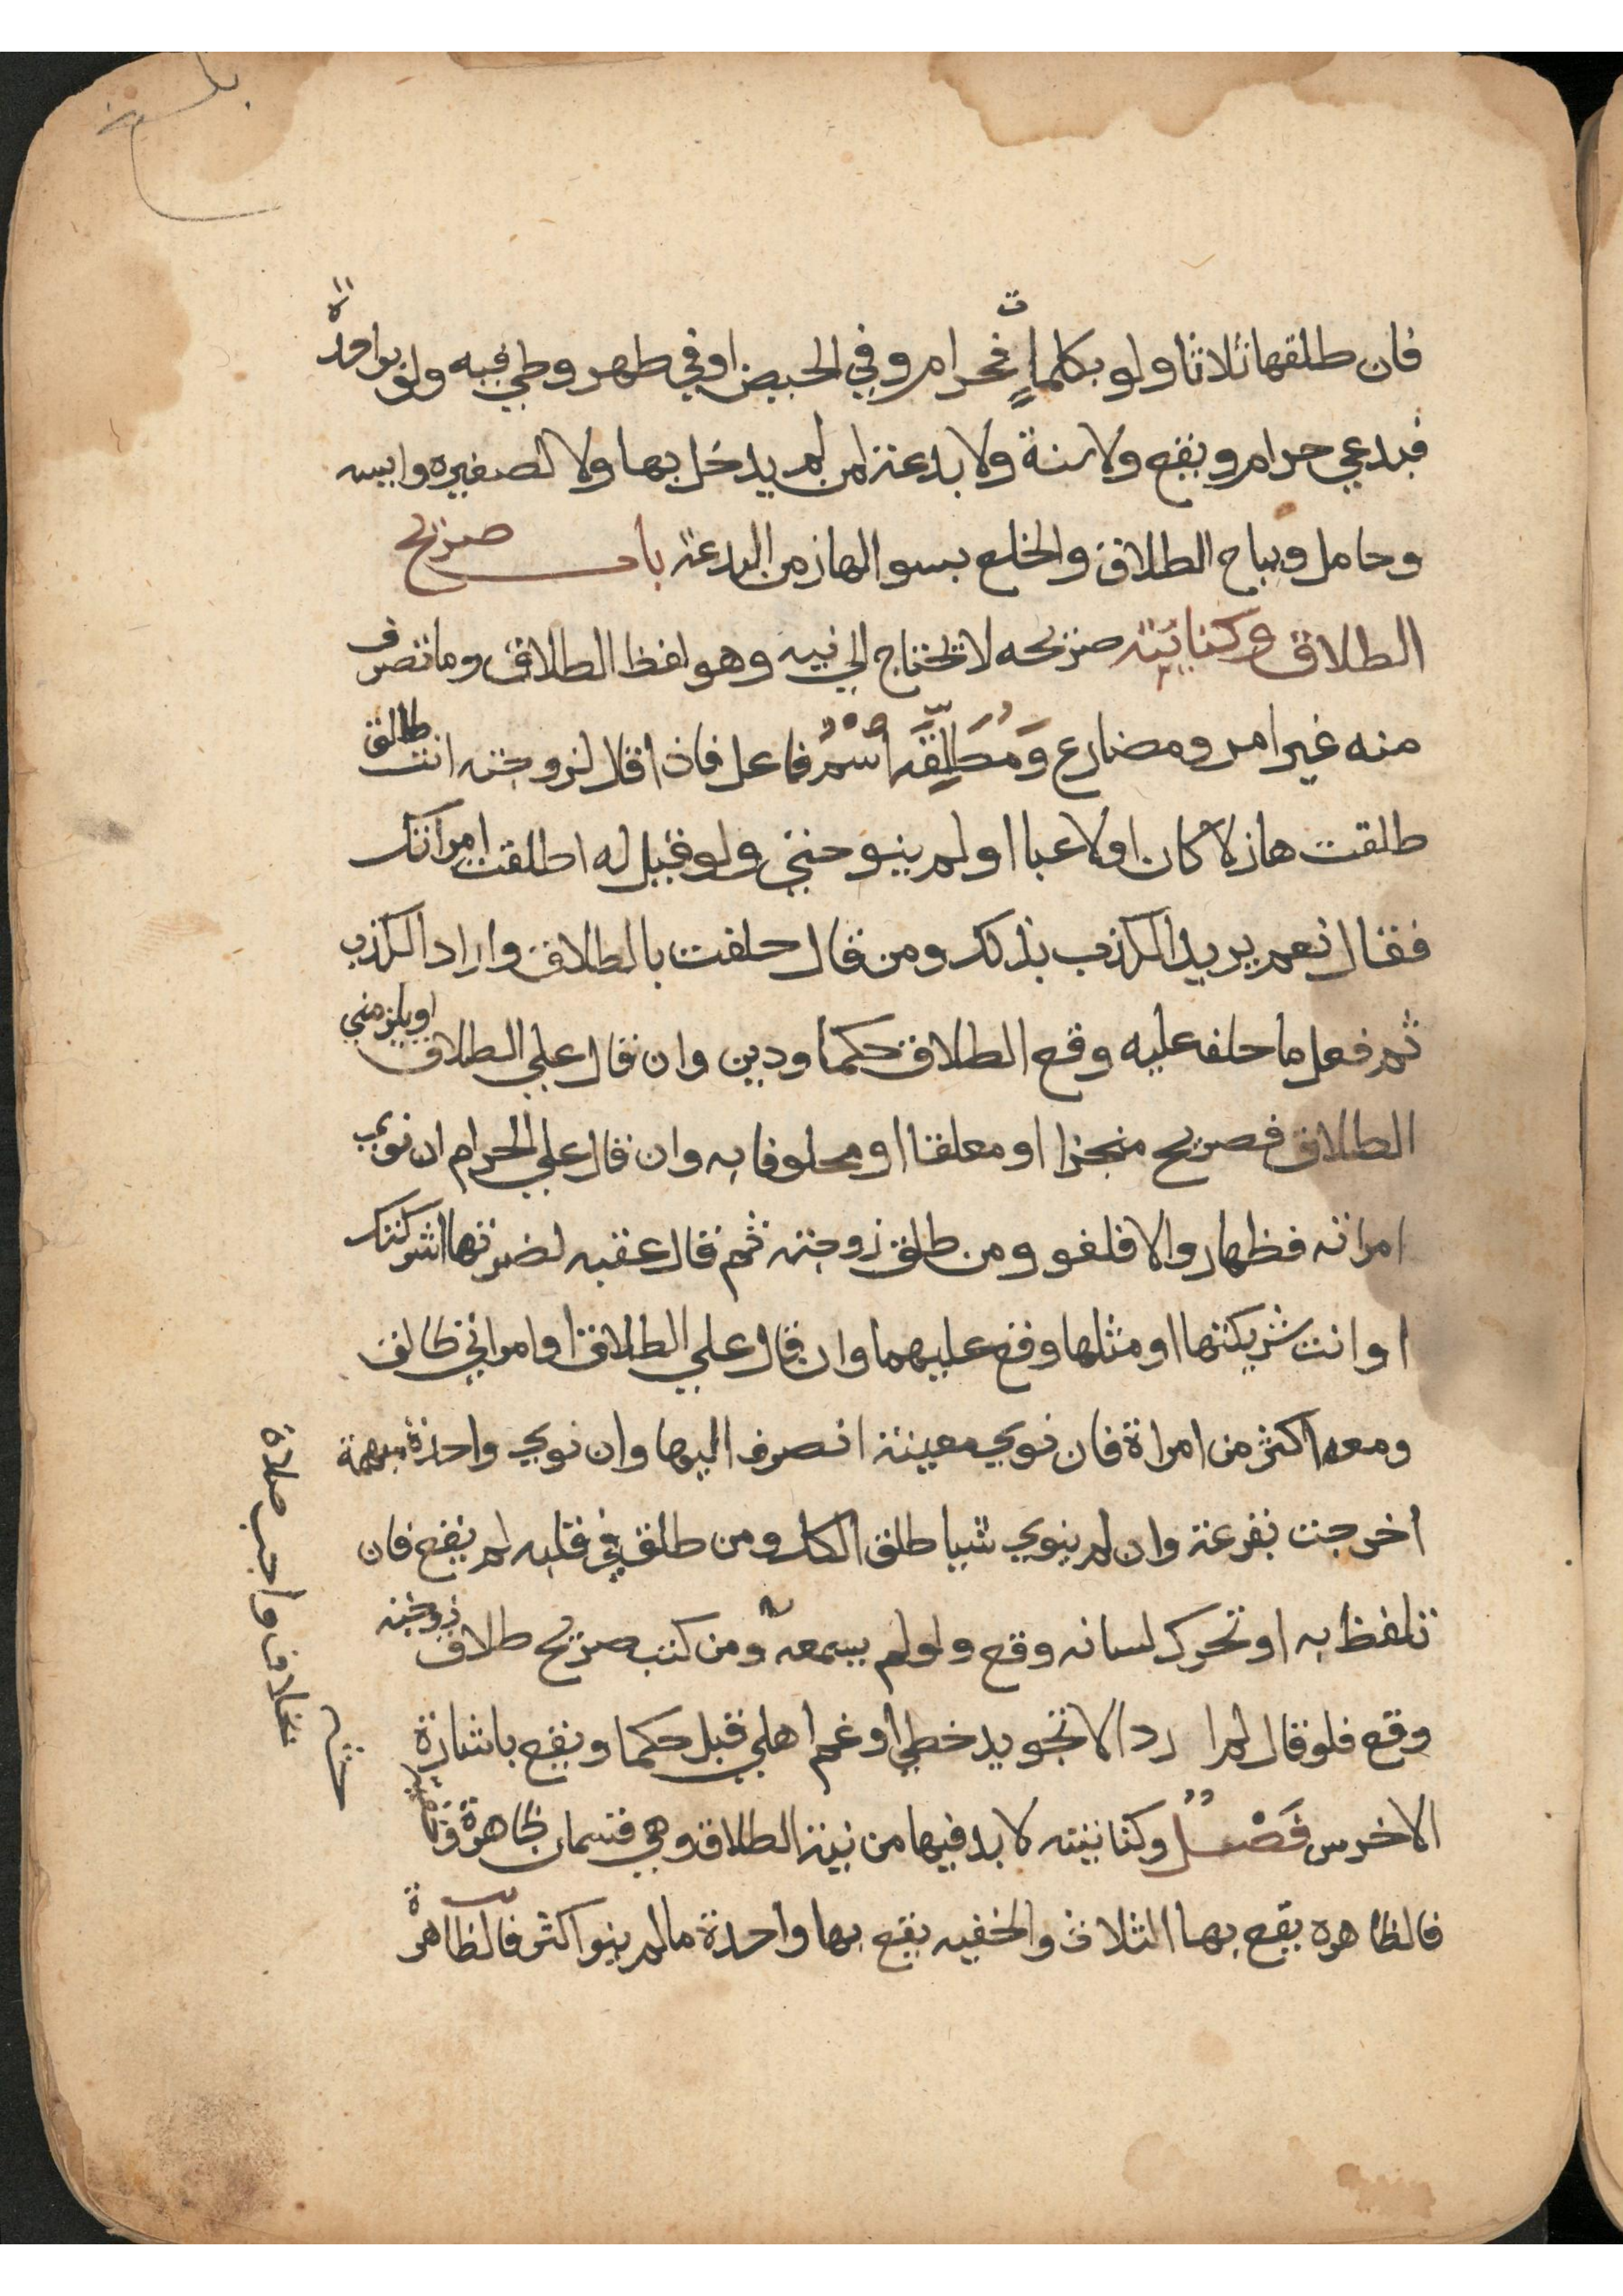 فان طلقها ثلاثا ولو بكلمات فحرام وفي الحيض او في طهر وطي فيه ولو بواحدة
فبدعي حرام ويقع ولا سنة ولا بدعة لمن لم يدخل بها ولا لصغيره وايسه
وحامل ويباح الطلاق والخلع بسوالها زمن البدعة باب صريح
الطلاق وكنايته صريحه لا يحتاج الي نيه وهو لفظ الطلاق وما تصرف
منه غير امر ومضارع ومطلقه اسم فاعل فاذا قال لزوجته انت طالق
طلقت هازلا كان او لاعبا او لم ينو حتي ولو قيل له اطلقت امراتك
فقال نعم يريد الكذب بذلك ومن قال حلفت بالطلاق واراد الكذب
ثم فعل ما حلف عليه وقع الطلاق حكما ودين وان قال علي الطلاق او يلزمني
الطلاق فصريح منجزا او معلقا او محلوفا به وان قال علي الحرام ان نوي
امراته فظهار والا فلغو ومن طلق زوجته ثم قال عقبه لضرتها اشركتك
او انت شريكتها او مثلها وقع عليهما وان قال علي الطلاق او امراتي طالق
ومعه اكثر من امراة فان نوي معينة انصرف اليها وان نوي واحدة مبهمة
اخرجت بقرعة وان لم ينوي شيا طلق الكل ومن طلق في قلبه لم يقع فان
تلفظ به او تحرك لسانه وقع ولو لم يسمعه ومن كتب صريح طلاق زوجته
وقع فلو قال لم ارد الا تجويد خطي او غم اهلي قبل حكما ويقع باشارة
الاخرس فصل وكنايته لا بد فيها من نية الطلاق وهي قسمان ظاهرة وخفية
فالظاهره يقع بها الثلاث والخفيه يقع بها واحدة ما لم ينو اكثر فالظاهرة
بخلاف واجب صلاة